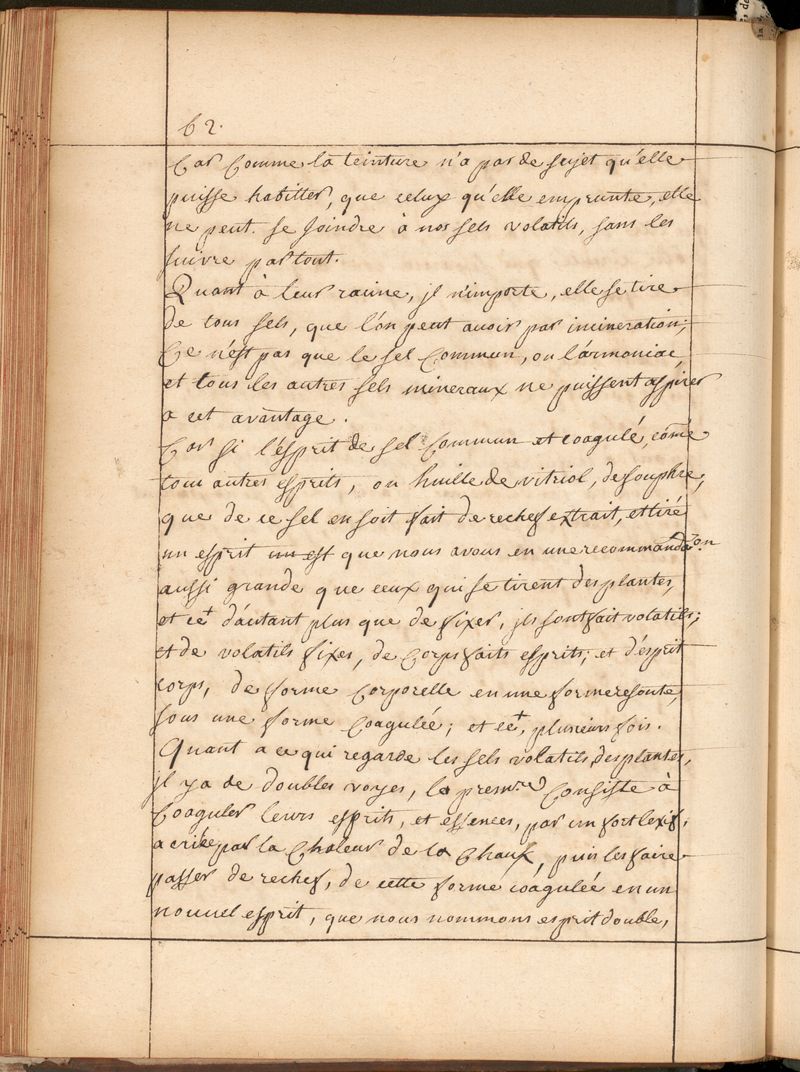 62.
Car Comme la teinture n'a pas de sujet qu'elle
puisse habiller, que celuy qu'elle emprunte, elle
ne peut se joindre à nos sels volatils, sans les
suivre par tout.
Quant à leur racine, jl n'importe, elle se tire
de tous sels, que l'on peut avoir par incineration;
Ce n'est pas que le sel Commun, ou l'armoniac,
et tous les autres sels mineraux ne puissent aspirer
a cet avantage.
Car si l'esprit de sel Commun et coagulé, come
tous autres esprits, ou huille de vitriol, de souphre,
que de ce sel en soit fait de rechef extrait, et tiré
un esprit un est que nous avons en une recommanda^on.
aussi grande que ceux qui se tirent des plantes,
et ce^t d'autant plus que de fixes, jls sont fait volatils;
et de volatils fixes, de Corps faits esprits; et d'esprit
corps, de forme Corporelle en une forme resoute,
sous une forme Coagulée; et ce^t, plusieurs fois.
Quant a ce qui regarde les sels volatils des plantes,
jl y a de doubles voyes, la prem^re Consiste à
Coaguler leurs esprits, et essences, par un fort lexif,
a par la Chaleur de la Chaux, puis les faire
passer de rechef, de cette forme coagulée en un
nouvel esprit, que nous nommons esprit double,